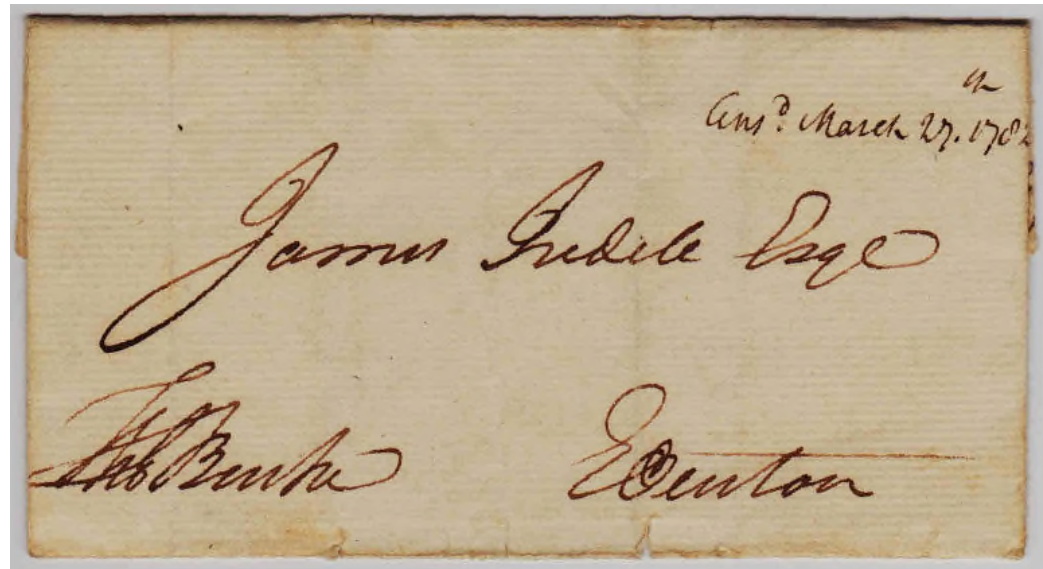 Ansd. March 27th. 1782
James Iredele Esqe
Tho Burke
Edenton